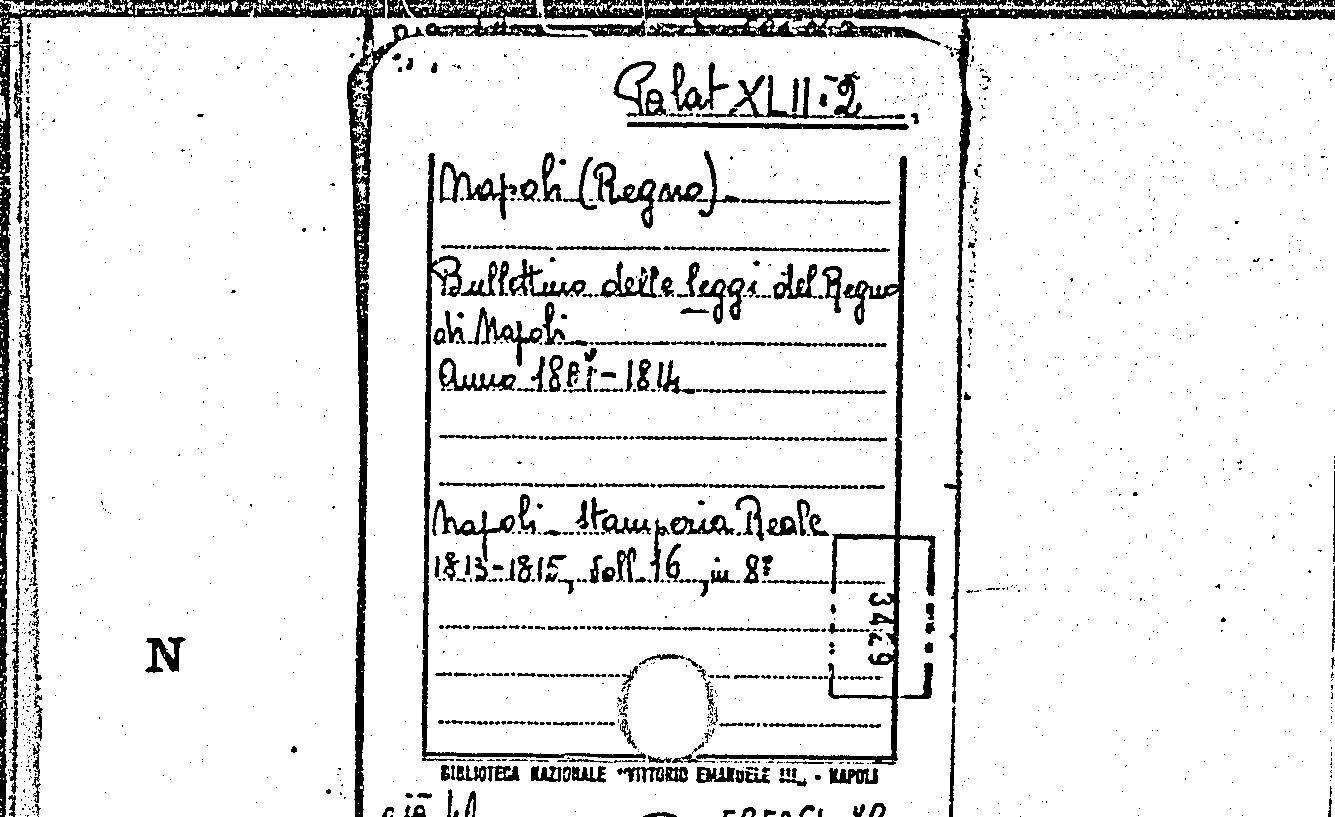 Palat XLII.2
Napoli (Regno)
Bullettino delle leggi del Regno
di Napoli
Anno - 1814
Napoli - Stamperia Reale
1813-1815, 16, in 8º
3429
N
BIBLIOTECA NAZIONALE "VITTORIO EMANUELE III" - NAPOLI